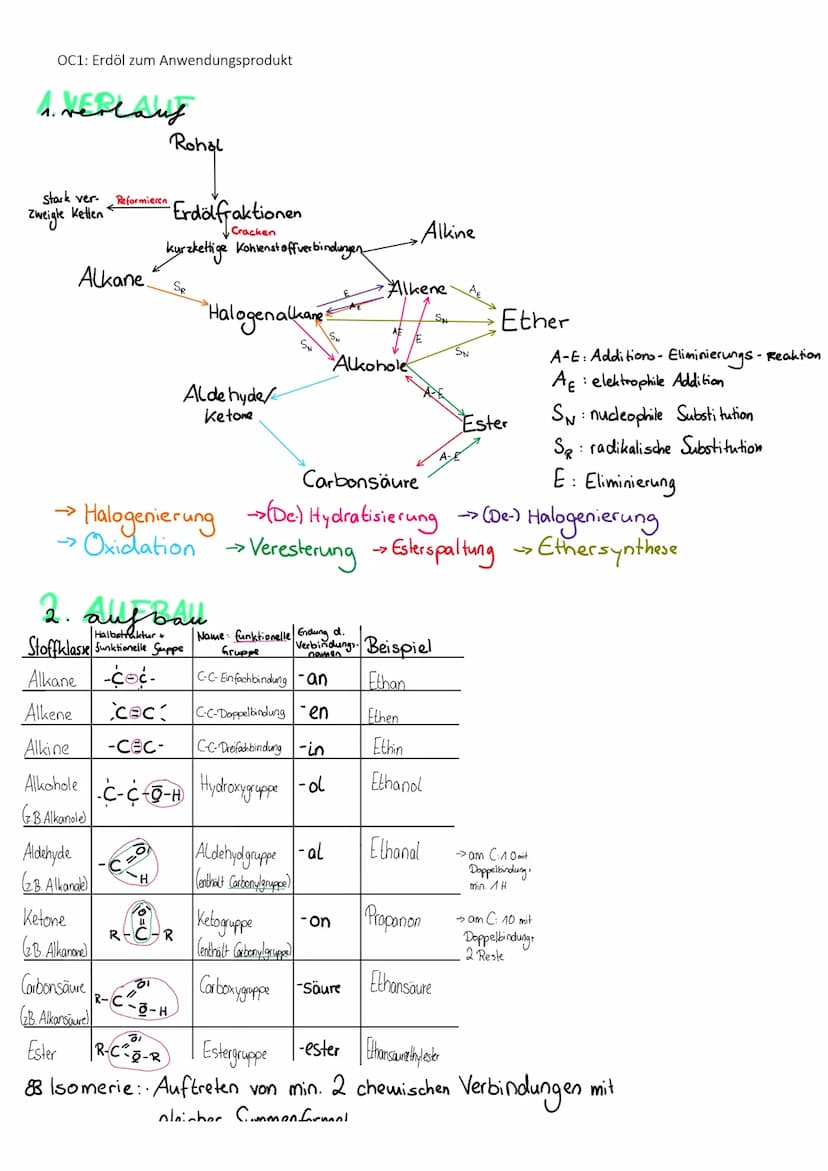 OC1: Erdöl zum Anwendungsprodukt
1. VERLAUF
1. verlauf
Rohöl
stark ver-
zweigte Ketten
Reformieren
Erdölfraktionen
Cracken
kurzkettige Kohlenstoffverbindungen
Alkine
Alkane
SR
Alkene
E
AE
AE
Halogenalkane
SN
Ether
SN
SN
AE
E
SN
Alkohole
A-E: Additions-Eliminierungs-Reaktion
AE: elektrophile Addition
Aldehyde/
Ketone
A-E
Ester
SN: nucleophile Substitution
SR: radikalische Substitution
A-E
Carbonsäure
E: Eliminierung
→ Halogenierung →(De-) Hydratisierung → (De-) Halogenierung
→ Oxidation → Veresterung → Esterspaltung → Ethersynthese
2. AUFBAU
2. aufbau
Stoffklasse Halbstruktur + funktionelle Gruppe Name: funktionelle Gruppe Endung d. Verbindungs-namen Beispiel
Alkane -C-C- C-C-Einfachbindung -an Ethan
Alkene C=C C-C-Doppelbindung -en Ethen
Alkine -C≡C- C-C-Dreifachbindung -in Ethin
Alkohole -C-C-O-H Hydroxygruppe -ol Ethanol
(z.B. Alkanole)
Aldehyde -C O H Aldehydgruppe -al Ethanal → am C: 1 O mit
(z.B. Alkanale) (enthält Carbonylgruppe) Doppelbindung +
min. 1 H
Ketone O R-C-R Ketogruppe -on Propanon → am C: 1O mit
(z.B. Alkanone) (enthält Carbonylgruppe) Doppelbindung +
2 Reste
Carbonsäure R-C O O-H Carboxygruppe -säure Ethansäure
(z.B. Alkansäure)
Ester R-C O O-R Estergruppe -ester Ethansäureethylester
Isomerie: Auftreten von min. 2 chemischen Verbindungen mit
gleicher Summenformel